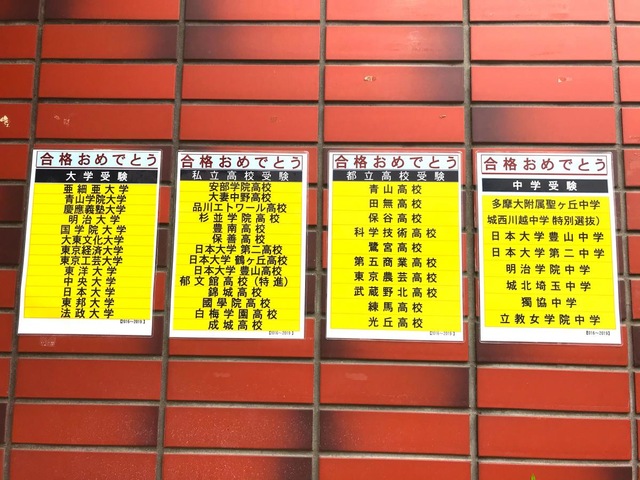 合格おめでとう
大学受験
亜細亜大学
青山学院大学
慶應義塾大学
明治大学
国学院大学
大東文化大学
東京経済大学
東京工芸大学
東洋大学
中央大学
日本大学
東邦大学
法政大学
【2016~2018】
合格おめでとう
私立高校受験
安部学院高校
大妻中野高校
品川エトワール高校
杉並学院高校
豊南高校
保善高校
日本大学第二高校
日本大学鶴ヶ丘高校
日本大学豊山高校
郁文館高校(特進)
錦城高校
國學院高校
白梅学園高校
成城高校
【2016~2018】
合格おめでとう
都立高校受験
青山高校
田無高校
保谷高校
科学技術高校
鷺宮高校
第五商業高校
東京農芸高校
武蔵野北高校
練馬高校
光丘高校
【2016~2018】
合格おめでとう
中学受験
多摩大附属聖ヶ丘中学
城西川越中学特別選抜)
日本大学豊山中学
日本大学第二中学
明治学院中学
城北埼玉中学
獨協中学
立教女学院中学
【2016~2018】